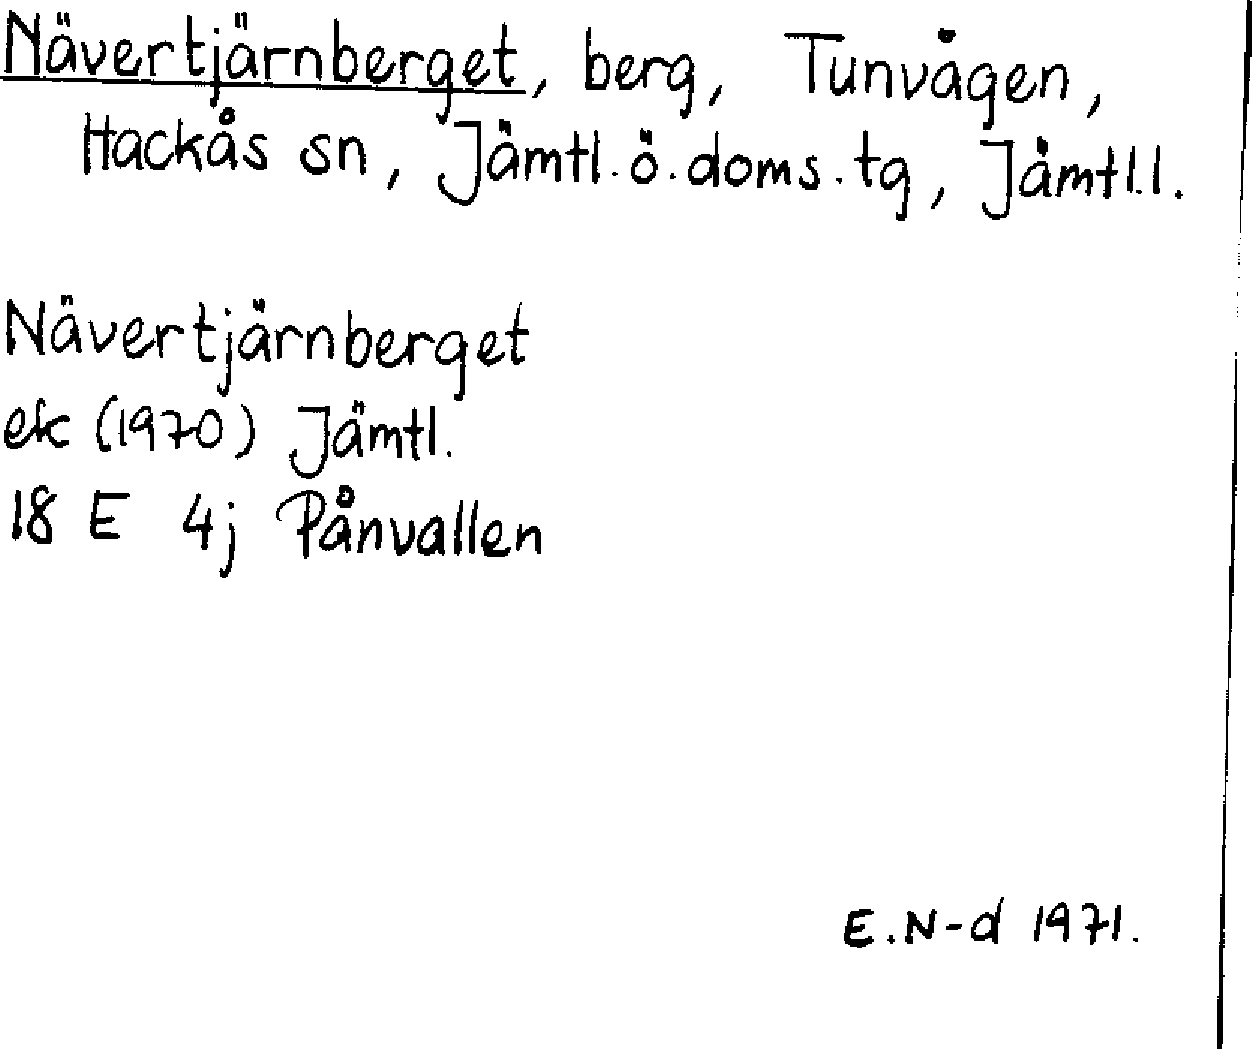 Nävertjärnberget, berg, Tunvågen,
Hackås sn, Jämtl.ö.doms.tg, Jämtl.l.
Nävertjärnberget
ek (1970) Jämtl.
18 E 4j Pånvallen
E.N-d 1971.